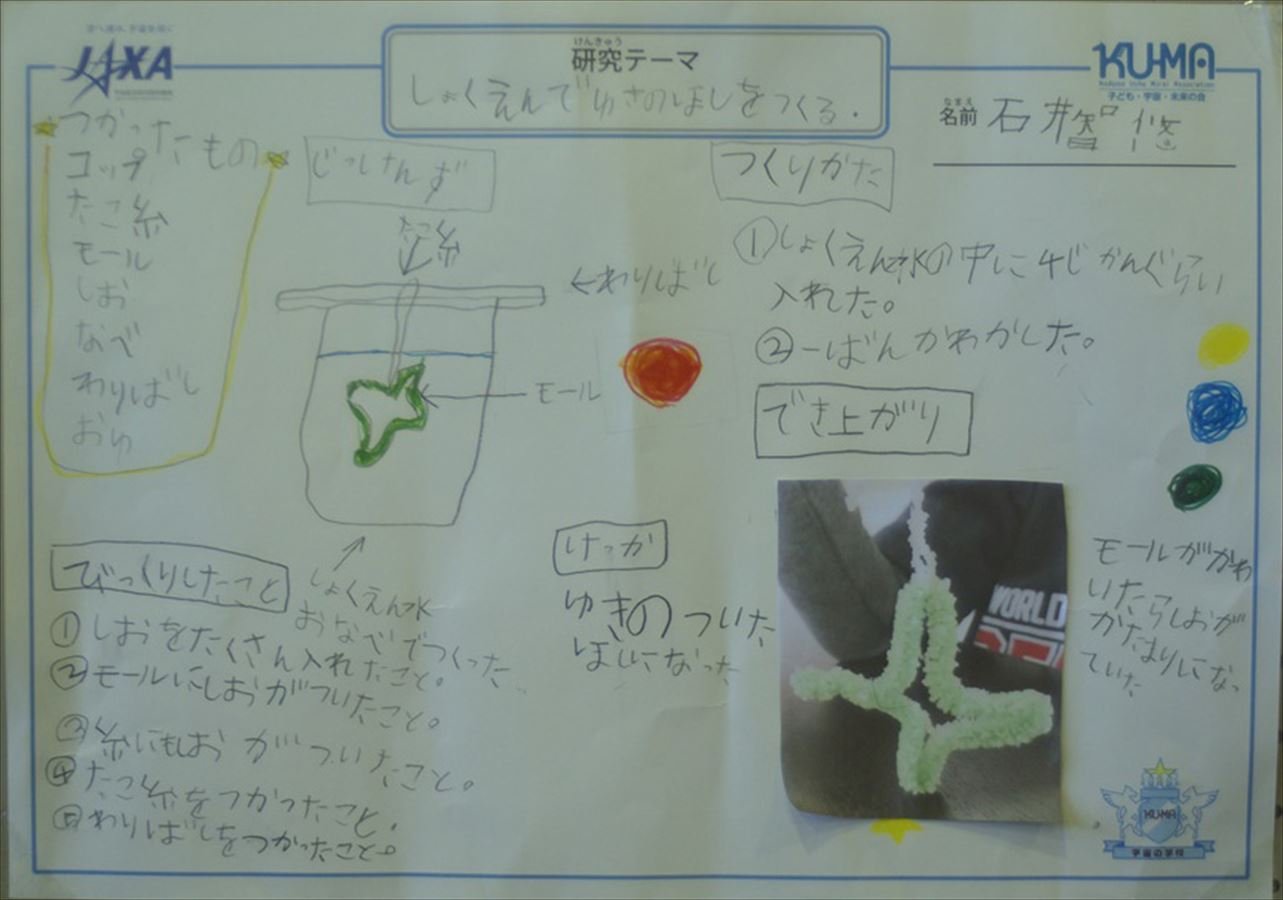 JAXA
けんきゅう
研究テーマ
しょくえんでゆきのほしをつくる.
KU-MA
子ども・宇宙・未来の会
なまえ
名前 石井智悠
つかったもの
コップ
たこ糸
モール
しお
なべ
わりばし
おゆ
じっけんず
たこ糸
←わりばし
モール
しょくえん水
おなべでつくった
つくりかた
①しょくえん水の中に4じかんぐらい
入れた。
②一ばんかわかした。
でき上がり
WORLD
モールがかわ
いたらしおが
かたまりになっ
ていた
けっか
ゆきのついた
ほしになった
びっくりしたこと
①しおをたくさん入れたこと。
②モールにしおがついたこと。
③糸にもしおがついたこと。
④たこ糸をつかったこと.
⑤わりばしをつかったこと。
KU-MA
宇宙の学校